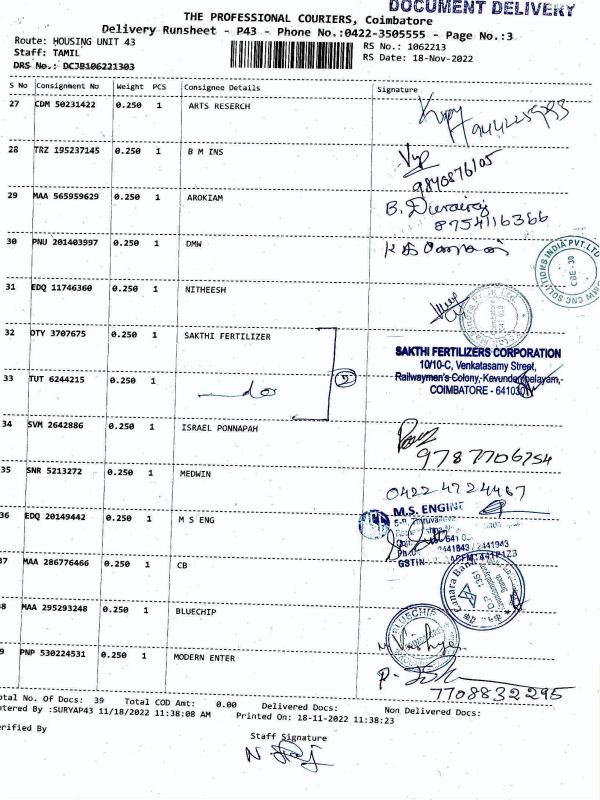 DOCUMENT DELIVERY
THE PROFESSIONAL COURIERS, Coimbatore
Delivery Runsheet - P43 - Phone No.:0422-3505555 - Page No.:3
Route: HOUSING UNIT 43 RS No.: 1062213
Staff: TAMIL RS Date: 18-Nov-2022
DRS No.: DCJB106221303
S No Consignment No Weight PCS Consignee Details Signature
27 CDM 50231422 0.250 1 ARTS RESERCH
28 TRZ 195237145 0.250 1 B M INS
9840876105
29 MAA 565959629 0.250 1 AROKIAM B. Durairaj
8754116366
30 PNU 201403997 0.250 1 DMW
31 EDQ 11746360 0.250 1 NITHEESH
32 DTY 3707675 0.250 1 SAKTHI FERTILIZER
SAKTHI FERTILIZERS CORPORATION
10/10-C, Venkatasamy Street,
Railwaymen's Colony, Kavundampalayam,
COIMBATORE - 641030
33 TUT 6244215 0.250 1 do
34 SVM 2642886 0.250 1 ISRAEL PONNAPAH
9787706754
35 SNR 5213272 0.250 1 MEDWIN 0422 4724467
36 EDQ 20149442 0.250 1 M S ENG M.S. ENGINE
2441843 / 2441943
GSTIN
37 MAA 286776466 0.250 1 CB Canara Bank
38 MAA 295293248 0.250 1 BLUECHIP BLUECHIP
39 PNP 530224531 0.250 1 MODERN ENTER
7708832295
otal No. Of Docs: 39 Total COD Amt: 0.00 Delivered Docs: Non Delivered Docs:
ntered By :SURYAP43 11/18/2022 11:38:08 AM Printed On: 18-11-2022 11:38:23
erified By Staff Signature